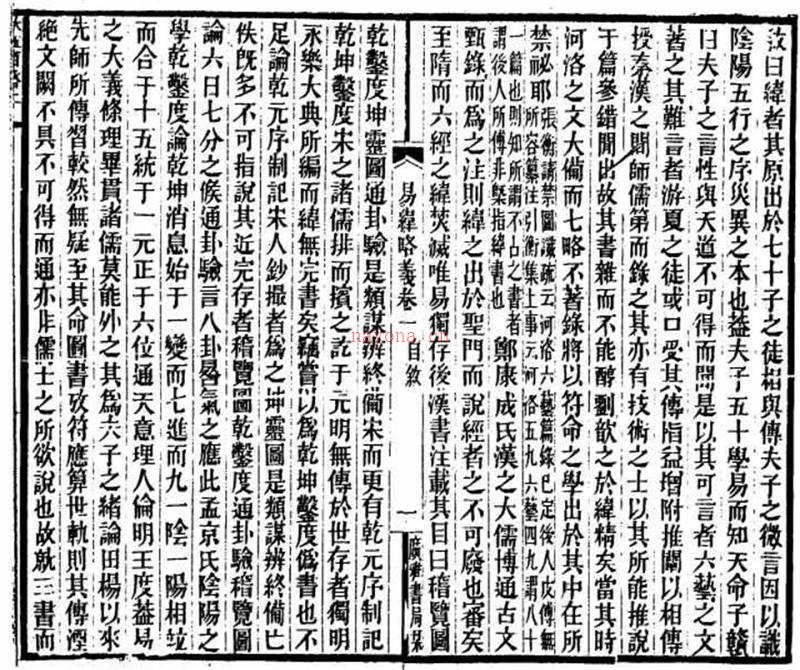 敘曰緯者其原出於七十子之徒相與傳夫子之微言因以識
陰陽五行之序災異之本也蓋夫子五十學易而知天命子贛
曰夫子之言性與天道不可得而聞是以其可言者六藝之文
著之其難言者游夏之徒或口受其傳恉益增附推闡以相傳
授秦漢之閒師儒第而錄之其亦有技術之士以其所能推說
于篇參錯閒出故其書雜而不能醇劉歆之於緯精矣當其時
河洛之文大備而七略不著錄將以符命之學出於其中在所
禁祕耶張衡請禁圖讖疏云河洛六藝篇錄已定後人皮傅無
所容篡注引衡集上事云河洛五九六藝四九謂八十
一篇也則知所謂不占之書者
謂後人所傅非槩指緯書也
鄭康成氏漢之大儒博通古文
甄錄而爲之注則緯之出於聖門而說經者之不可廢也審矣
至隋而六經之緯焚滅唯易獨存後漢書注載其目曰稽覽圖
易緯略義卷一自敘
一
廣雅書局栞
nayona.cn
乾鑿度坤靈圖通卦驗是類謀辨終備宋而更有乾元序制記
乾坤鑿度宋之諸儒排而擯之訖于元明無傳於世存者獨明
永樂大典所編而緯無完書矣竊嘗以爲乾坤鑿度僞書也不
足論乾元序制記宋人鈔撮者爲之坤靈圖是類謀辨終備亡
佚旣多不可指說其近完存者稽覽圖乾鑿度通卦驗稽覽圖
論六日七分之候通卦驗言八卦晷气之應此孟京氏陰陽之
學乾鑿度論乾坤消息始于一變而七進而九一陰一陽相竝
而合于十五統于一元正于六位通天意理人倫明王度蓋易
之大義條理畢貫諸儒莫能外之其爲六子之緒論田楊以來
先師所傳習較然無疑至其命圖書攷符應算世軌則其傳湮
絕文闕不具不可得而通亦非儒士之所欲說也故就三書而